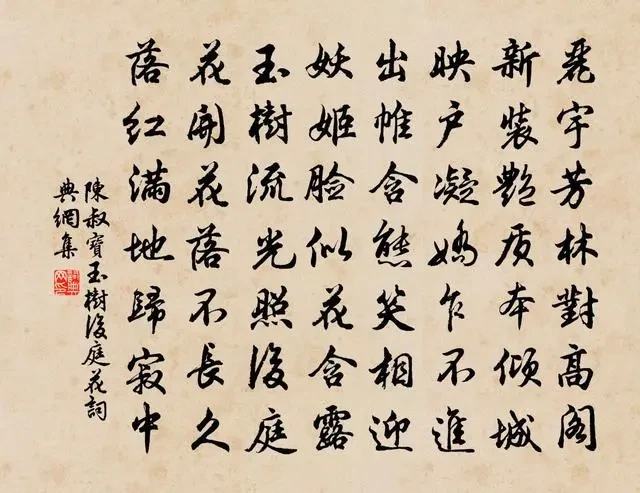 麗宇芳林對高閣
新裝艷质本傾城
映户凝嬌乍不進
出帷含態笑相迎
妖姬脸似花含露
玉樹流光照後庭
花開花落不長久
落红满地歸寂中
陳叔寶玉樹後庭花詞
典網集